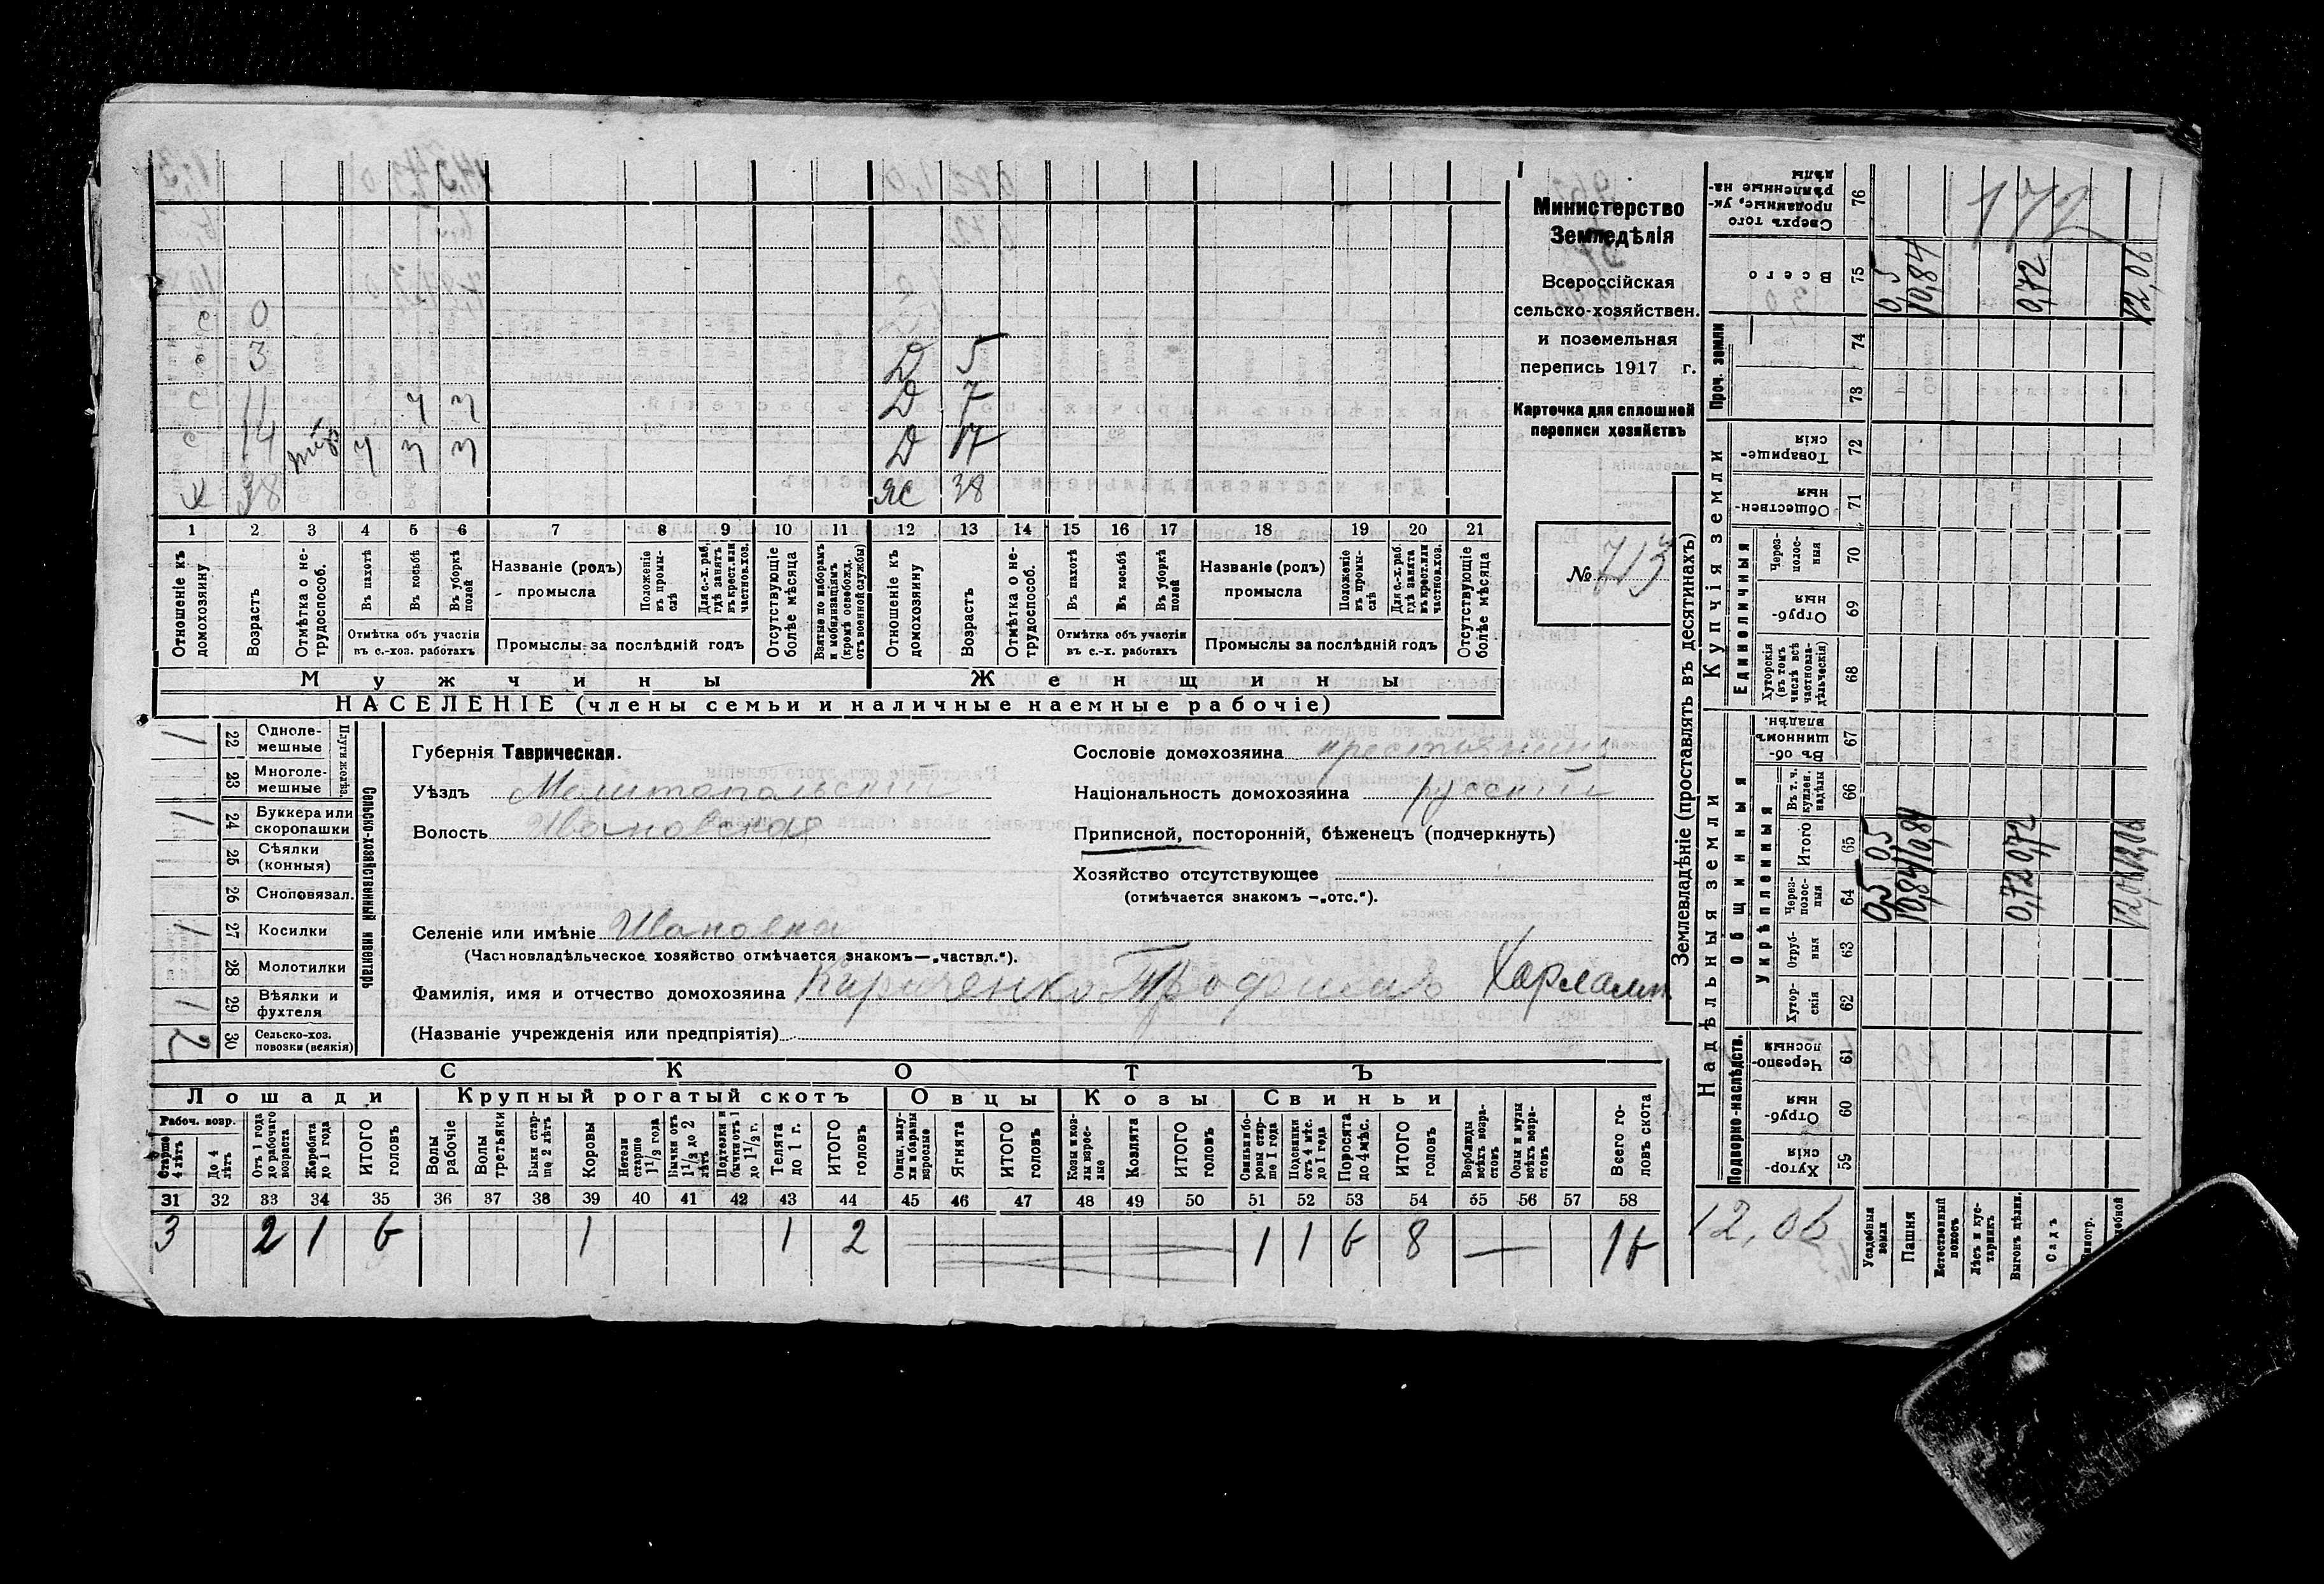 с 0
с 3 Д 5
с 11 ч ч Д 7
с 14 ч ч ч Д 17
х 38 ж 38
1 2 3 4 5 6 7 8 9 10 11 12 13 14 15 16 17 18 19 20 21
Отношеніе къ домохозяину
Возрастъ
Отмѣтка о не-
трудоспособ.
Въ пахотѣ
Въ косьбѣ
Въ уборкѣ полей
Отмѣтка объ участіи
въ с.-хоз. работахъ
Названіе (родъ)
промысла
Положеніе въ промы-
слѣ
Для с.-х. раб. гдѣ занятъ въ крест. или частнов. хоз.
Промыслы за послѣдній годъ
Отсутствующіе болѣе мѣсяца
Взятые по наборамъ и мобилизаціямъ (кромѣ освобожд. отъ военной службы)
Отношеніе къ домохозяину
Возрастъ
Отмѣтка о не-
трудоспособ.
Въ пахотѣ
Въ косьбѣ
Въ уборкѣ полей
Отмѣтка объ участіи
въ с.-х. работахъ
Названіе (родъ)
промысла
Положеніе въ промы-
слѣ
Для с.-х. раб. гдѣ занята въ крест. или частнов. хоз.
Промыслы за послѣдній годъ
Отсутствующіе болѣе мѣсяца
Мужчины Женщины
НАСЕЛЕНІЕ (члены семьи и наличные наемные рабочіе)
Министерство
Земледѣлія
Всероссійская
сельско-хозяйствен.
и поземельная
перепись 1917 г.
Карточка для сплошной
переписи хозяйствъ
№ 713
Сельско-хозяйственный инвентарь
Плуги желѣз.
22 Одноле-
мешные 1
23 Многоле-
мешные
24 Буккера или
скоропашки 1
25 Сѣялки
(конныя)
26 Сноповязал.
27 Косилки 1
28 Молотилки
29 Вѣялки и
фухтеля 1
30 Сельско-хоз.
повозки (всякія) 2
Губернія Таврическая.
Уѣздъ Мелитопольскій
Волость Ивановская
Сословіе домохозяина крестьянинъ
Національность домохозяина русскій
Приписной, посторонній, бѣженецъ (подчеркнуть)
Хозяйство отсутствующее
(отмѣчается знакомъ —„отс.“).
Селеніе или имѣніе Ивановка
(Частновладѣльческое хозяйство отмѣчается знакомъ—„частвл.“).
Фамилія, имя и отчество домохозяина Кириченко Трофимъ Харламп.
(Названіе учрежденія или предпріятія)
СКОТЪ
Лошади Крупный рогатый скотъ Овцы Козы Свиньи
Рабоч. возр.
Старше 4 лѣтъ
До 4 лѣтъ
Отъ 1 года до рабочаго возраста
Жеребята до 1 года
ИТОГО головъ
Волы рабочіе
Волы третьяки
Быки стар-
ше 2 лѣтъ
Коровы
Нетели старше 1 1/2 года
Бычки отъ 1 1/2 до 2 лѣтъ
Подтелки и бычки отъ 1 до 1 1/2 г.
Телята до 1 г.
ИТОГО головъ
Овцы, валу-
хи и бараны взрослые
Ягнята
ИТОГО головъ
Козы и коз-
лы взрос-
лые
Козлята
ИТОГО головъ
Свиньи и бо-
ровы стар-
ше 1 года
Подсвинки отъ 4 мѣс. до 1 года
Поросята до 4 мѣс.
ИТОГО головъ
Верблюды всѣхъ возра-
стовъ
Ослы и мулы всѣхъ возра-
стовъ
Всего го-
ловъ скота
31 32 33 34 35 36 37 38 39 40 41 42 43 44 45 46 47 48 49 50 51 52 53 54 55 56 57 58
3 2 1 6 1 1 2 1 1 6 8 — 16
Землевладѣніе (проставлять въ десятинахъ)
Надѣльныя земли Купчія земли Проч. земли
Подворно-наслѣдств. Общинныя Единоличныя
Укрѣпленныя
Хутор-
скія 59
Отруб-
ныя 60
Черезпо-
лосныя 61
Хутор-
скія 62
Отруб-
ныя 63
Через-
полос-
ныя 64
Итого 65
Въ т. ч. куплен. надѣлы 66
Въ об-
щинномъ владѣн. 67
Хуторскія (въ томъ числѣ всѣ частновла-
дѣльческія) 68
Отруб-
ныя 69
Через-
полос-
ныя 70
Обществен-
ныя 71
Товарище-
скія 72
73
74
Всего 75
Сверхъ того проданные, ук-
рѣпленные на-
дѣлы 76
12,06
Усадебныя земли 0,5 0,5 0,5
Пашня 10,84 10,84 10,84
Естественный покосъ
Лѣсъ и кус-
тарникъ
Выгонъ цѣлин. 0,72 0,72 0,72
Садъ
12,06 12,06 12,06
172